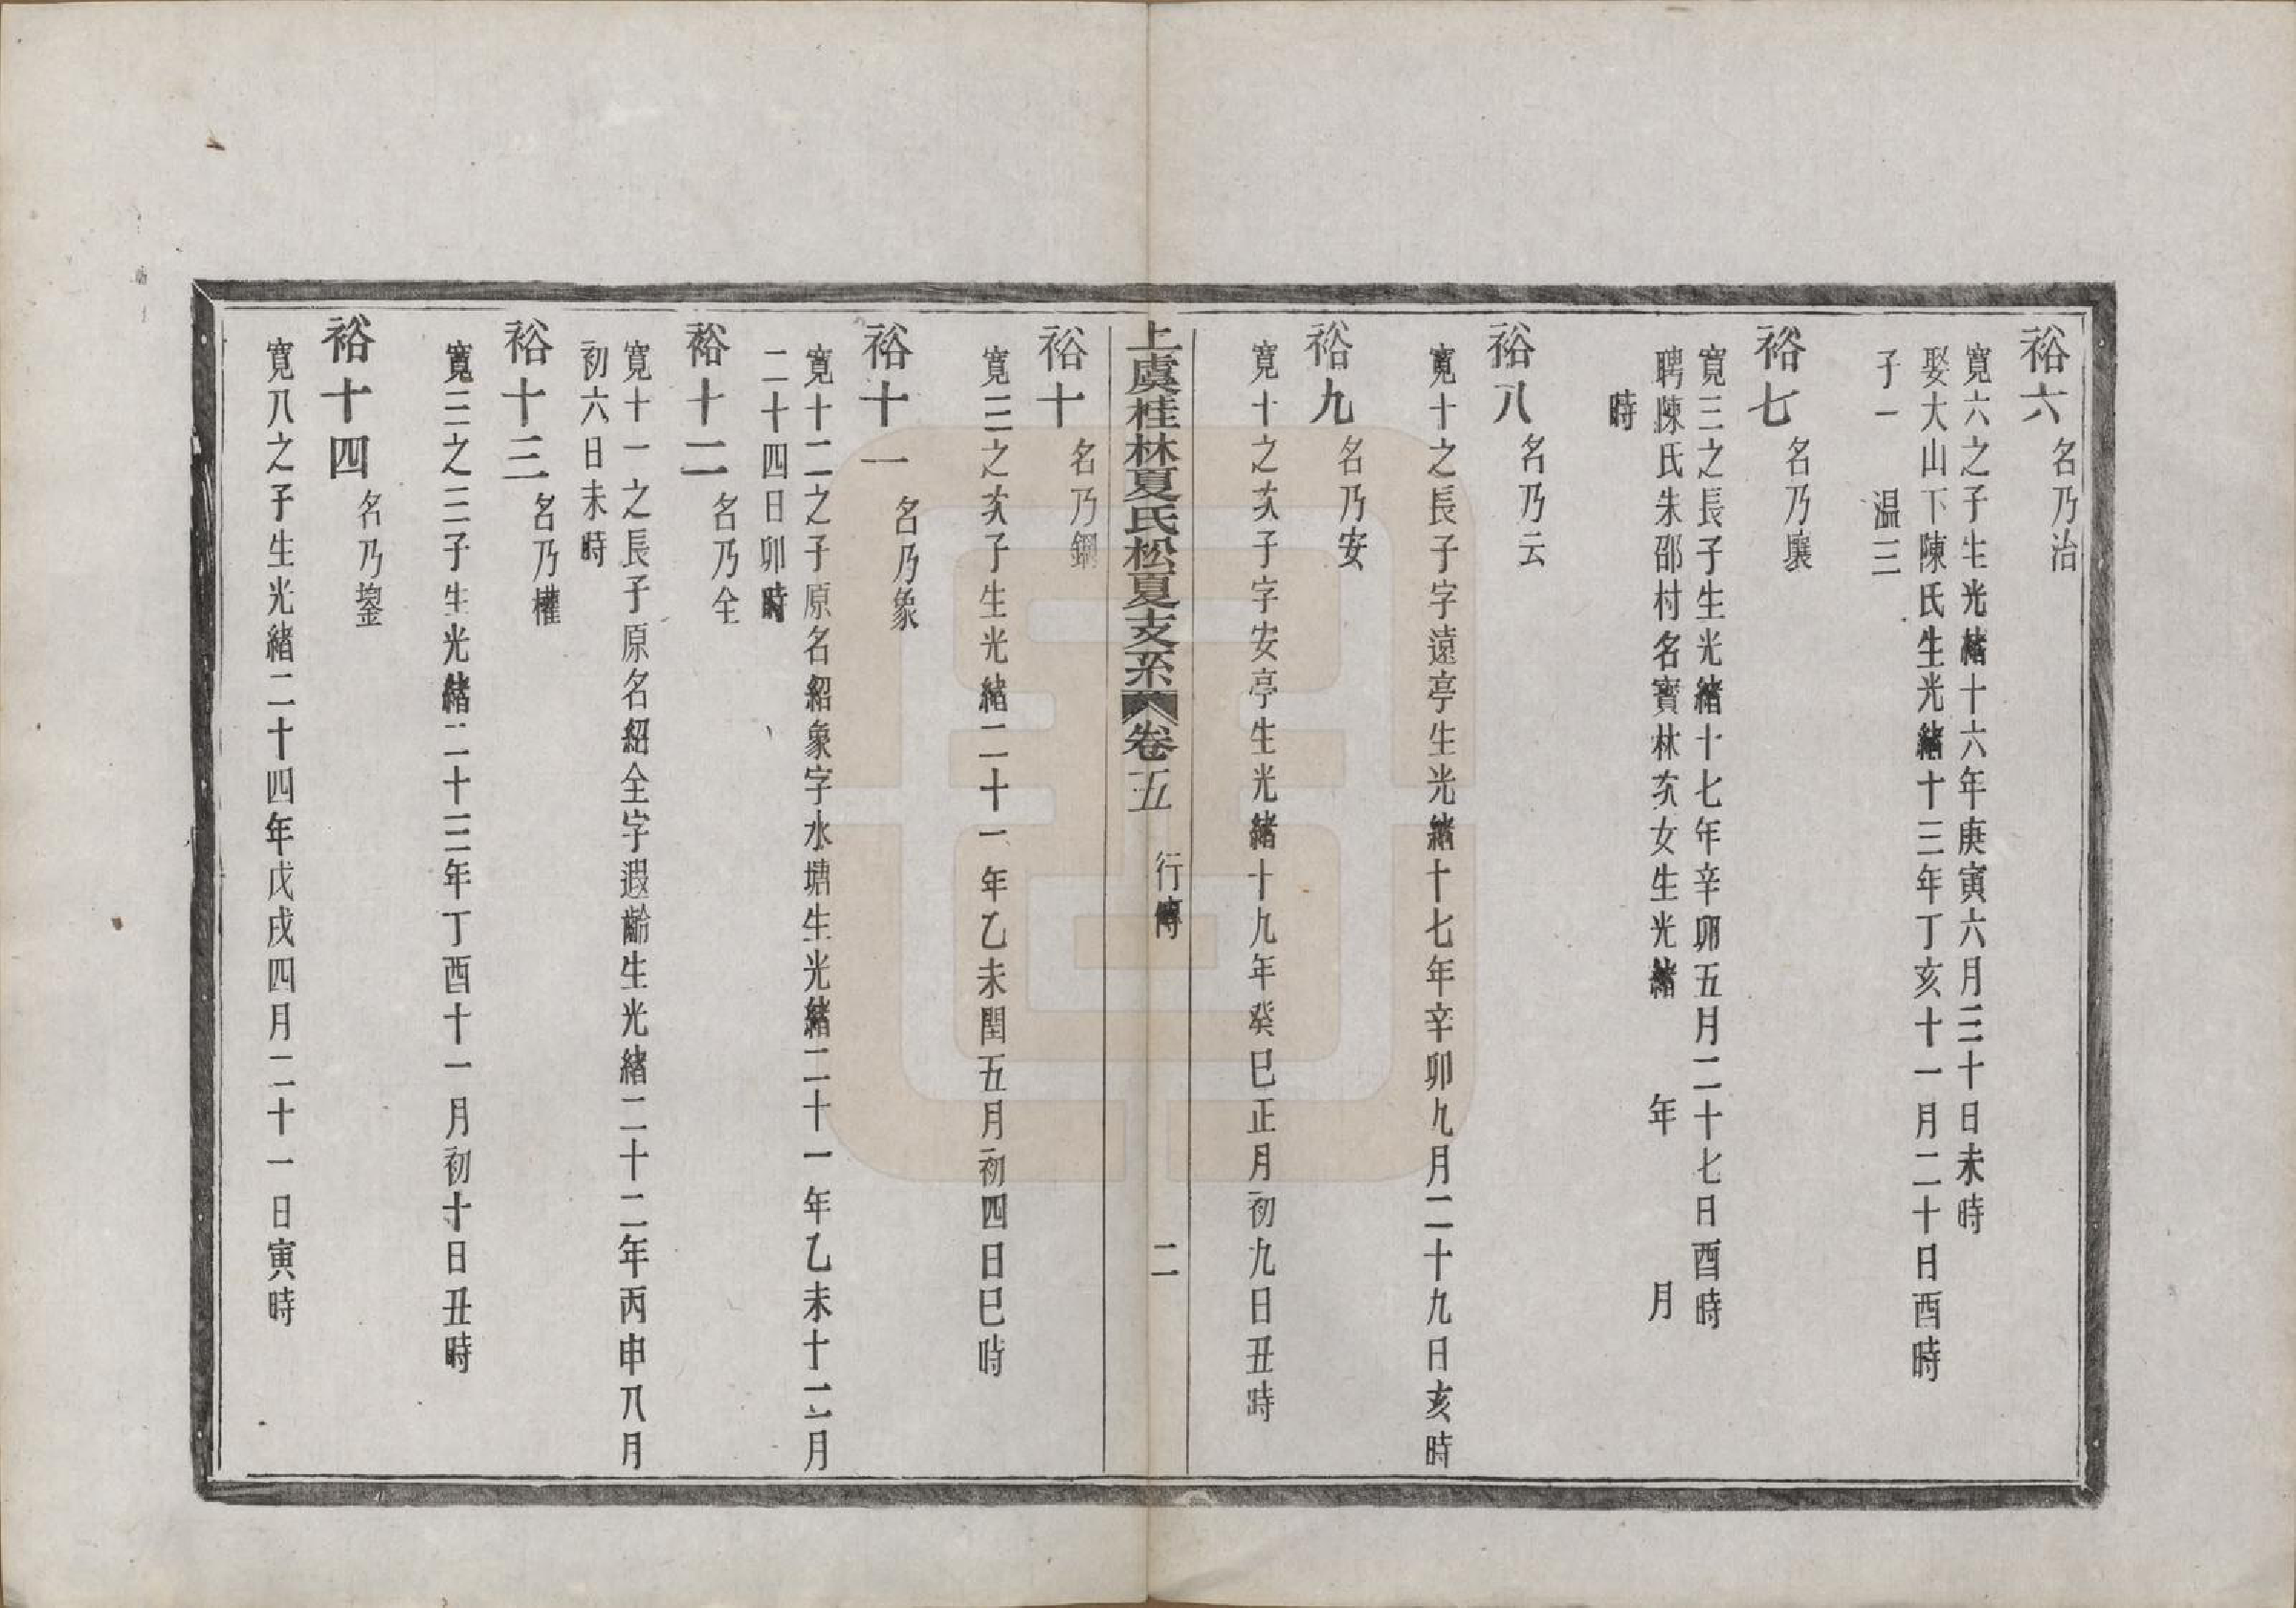 裕六 名乃治
寬六之子生光緒十六年庚寅六月三十日未時
娶大山下陳氏生光緒十三年丁亥十一月二十日酉時
子一 温三
裕七 名乃驤
寬三之長子生光緒十七年辛卯五月二十七日酉時
聘陳氏朱邵村名寶林次女生光緒 年 月
時
裕八 名乃云
寬十之長子字遠亭生光緒十七年辛卯九月二十九日亥時
裕九 名乃安
寬十之次子字安亭生光緒十九年癸巳正月初九日丑時
上虞桂林夏氏松夏支系 卷五 行傳 二
裕十 名乃鋼
寬三之次子生光緒二十一年乙未閏五月初四日巳時
裕十一 名乃象
寬十二之子原名紹象字水塘生光緒二十一年乙未十二月
二十四日卯時
裕十二 名乃全
寬十一之長子原名紹全字遐齡生光緒二十二年丙申八月
初六日未時
裕十三 名乃權
寬三之三子生光緒二十三年丁酉十一月初十日丑時
裕十四 名乃鋆
寬八之子生光緒二十四年戊戌四月二十一日寅時